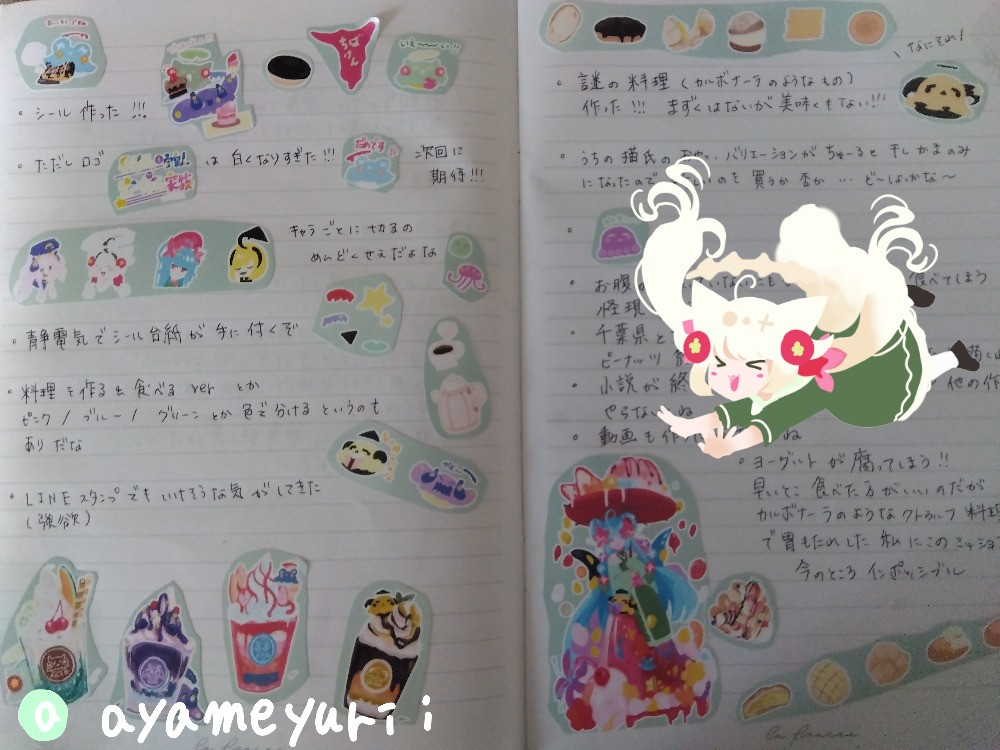 おいしいですね
ちばけん
いえ〜い!!
・シール作った!!!
・ただし ロゴ
は 白くなりすぎた!!!
だめです
次回に
期待!!!
キャラごとに切るの
めんどくせえだよな
・静電気でシール台紙が手に付くぞ
・料理を作る&食べる ver とか
ピンク/ブルー/グリーンとか色で分けるというのも
ありだな
・LINEスタンプでもいけそうな気がしてきた
(強欲)
なにそれ!
・謎の料理(カルボナーラのようなもの)
作った!!! まずくはないが美味くもない!!!
・うちの猫氏の バリエーションが ちゅーると 干しかまのみ
になったので のを買うか否か…ど〜しよっかな〜
・お腹
食べてしまう
怪現
・千葉県と
ピーナッツ
・小説が終
他の作
やらない ね
・動画も作 ね
・ヨーグルトが腐ってしまう!!
早いとこ食べた方がいいのだが
カルボナーラのようなクトゥルフ料理
で胃もたれした私にこのミッショ
今のところインポッシブル
a ayameyurii